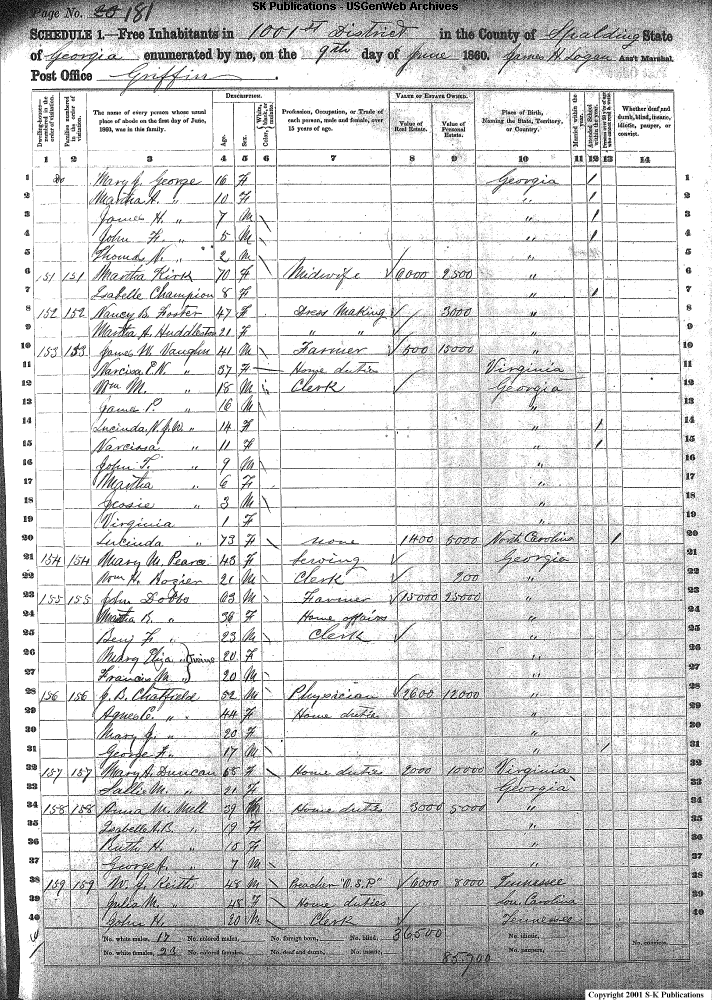 SK Publications - USGenWeb Archives
Page No. 181
SCHEDULE 1.—Free Inhabitants in 1001st District in the County of Spalding State
of Georgia enumerated by me, on the 9th day of June 1860. James H. Logan Ass't Marshal.
Post Office Griffin.
DESCRIPTION. VALUE OF ESTATE OWNED.
Dwelling-houses—numbered in the order of visitation. Families numbered in the order of visitation. The name of every person whose usual place of abode on the first day of June, 1860, was in this family. Age. Sex. Color, Profession, Occupation, or Trade of each person, male and female, over 15 years of age. Value of Real Estate. Value of Personal Estate. Place of Birth, Naming the State, Territory, or Country. Married within the year. Attended School within the year. Whether deaf and dumb, blind, insane, idiotic, pauper, or convict.
1 2 3 4 5 6 7 8 9 10 11 12 13 14
1 Mary J. George 16 F Georgia / 1
2 Martha A. " 10 F " / 2
3 James H. " 7 M " / 3
4 John F. " 5 M " / 4
5 Thomas " 2 M " 5
6 151 151 Martha Kirk 70 F Midwife 6000 2500 " 6
7 Isabelle Champion 8 F " / 7
8 152 152 Nancy B. Foster 47 F Dress Making 3000 " 8
9 Martha A. Huddleston 21 F " " " 9
10 153 153 James W. Vaughn 41 M Farmer 500 15000 " 10
11 Narcissa E.N. " 37 F Home duties Virginia 11
12 Wm M. " 18 M Clerk Georgia 12
13 James P. " 16 M " 13
14 Lucinda " 14 F " / 14
15 Narcissa " 11 F " / 15
16 John T. " 9 M " 16
17 Martha " 6 F " 17
18 3 M " 18
19 Virginia 1 F " 19
20 Lucinda " 73 F none 1400 5000 North Carolina / 20
21 154 154 Mary M. Pearce 43 F Sewing Georgia 21
22 Wm H. Rozier 21 M Clerk 200 " 22
23 155 155 John Dobbs 63 M Farmer 15000 25000 " 23
24 Martha B. " 36 F Home affairs " 24
25 Benj F. " 23 M Clerk " 25
26 Mary Eliza " Twins 20 F " 26
27 Francis M. " 20 M " 27
28 156 156 J. B. Chatfield 52 M Physician 2600 12000 " 28
29 Agnes C. " 44 F Home duties " 29
30 Mary J. " 20 F " 30
31 George F. " 17 M " / 31
32 157 157 Mary A. Duncan 65 F Home duties 2000 10000 Virginia 32
33 Sallie M. " 21 F Georgia 33
34 158 158 Anna M. Mill 39 Home duties 3000 5000 " 34
35 Isabelle A.B. " 19 F " 35
36 Ruth H. " 10 F " 36
37 George " 7 M " 37
38 159 159 W. J. Keith 48 M Preacher "O.S.P" 6000 8000 Tennessee 38
39 Julia M. " 48 F Home duties Sou. Carolina 39
40 John H. 20 M Clerk Tennessee 40
No. white males, 17 No. colored males, No. foreign born, No. blind, 36500 No. idiotic, No. convicts,
No. white females, 23 No. colored females, No. deaf and dumb, No. insane, 85,700 No. paupers,
Copyright 2001 S-K Publications